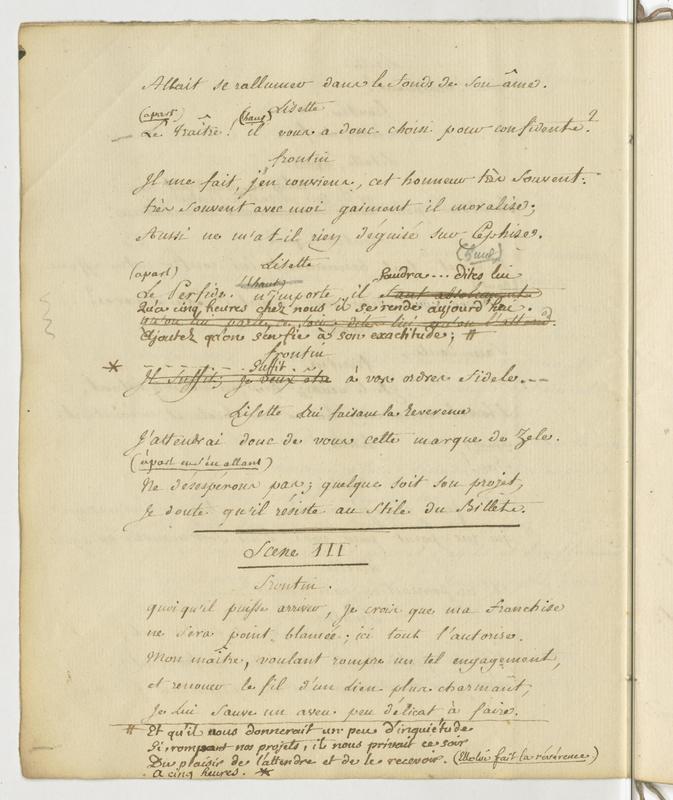 Allait se rallumer dans le fonds de son âme.
Lisette
(apart) (haut)
Le traître! il vous a donc choisi pour confidente?
frontin
Il me fait, j'en conviens, cet honneur très souvent:
très souvent avec moi gaiment il moralise;
Aussi ne m'a-t-il rien déguisé sur Céphise.
Lisette
(apart) (haut) faudra... dites lui
Le Perfide. n'importe, il faut absolument
Qu'a cinq heures chez nous il se rende aujourd'hui.
Ajoutez qu'on s'en fie à son exactitude; #
frontin
Suffit
* Il suffit; je veux être à vos ordres fidele...
Lisette lui faisant la Reverence
J'attendrai donc de vous cette marque de Zele.
(àpart en s'en allant)
Ne désespérons pas; quelque soit son projet,
Je doute qu'il résiste au stile du Billet.
Scene III
Frontin.
quoiqu'il puisse arriver, je crois que ma franchise
ne sera point blamée; ici tout l'autorise.
Mon maître, voulant rompre un tel engagement,
et renouer le fil d'un lien plus charmant,
Je lui sauve un aveu peu délicat à faire.
# Et qu'il nous donnerait un peu d'inquiétude
Si, rompant nos projets, il nous privait ce soir
Du plaisir de l'attendre et de le recevoir. (Elle lui fait la révérence)
A cinq heures. *